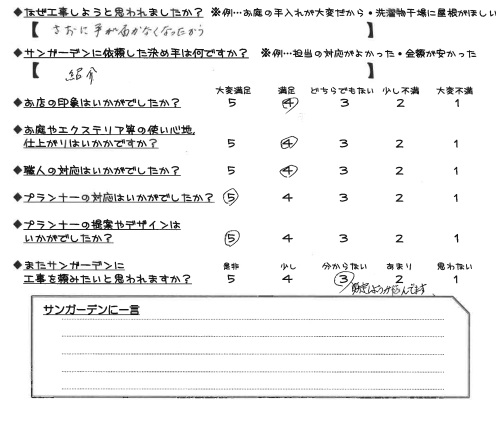 ◆なぜ工事しようと思われましたか？ ※例…お庭の手入れが大変だから・洗濯物干場に屋根がほしい
【 さおに手が届かなくなったから 】
◆サンガーデンに依頼した決め手は何ですか？ ※例…担当の対応がよかった・金額が安かった
【 紹介 】
大変満足 満足 どちらでもない 少し不満 大変不満
◆お店の印象はいかがでしたか？ 5 4 3 2 1
◆お庭やエクステリア等の使い心地、
仕上がりはいかかですか？ 5 4 3 2 1
◆職人の対応はいかがでしたか？ 5 4 3 2 1
◆プランナーの対応はいかがでしたか？ 5 4 3 2 1
◆プランナーの提案やデザインは
いかがでしたか？ 5 4 3 2 1
◆またサンガーデンに 是非 少し 分からない あまり 思わない
工事を頼みたいと思われますか？ 5 4 3 2 1
サンガーデンに一言